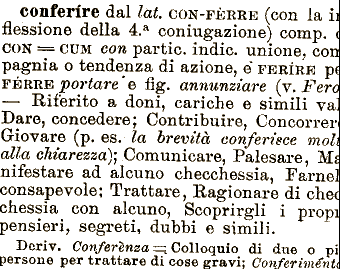 conferíre dal lat. CON-FÈRRE (con la
flessione della 4.ª coniugazione) comp.
CON = CUM con partic. indic. unione, com
pagnia o tendenza di azione, e FERÍRE
FÈRRE portare e fig. annunziare (v.
— Riferito a doni, cariche e simili
Dare, concedere; Contribuire,
Giovare (p. es. la brevità conferisce
alla chiarezza); Comunicare, Palesare,
nifestare ad alcuno checchessia,
consapevole; Trattare, Ragionare di
chessia con alcuno, Scoprirgli i
pensieri, segreti, dubbi e simili.
Deriv. Conferènza = Colloquio di due o
persone per trattare di cose gravi;